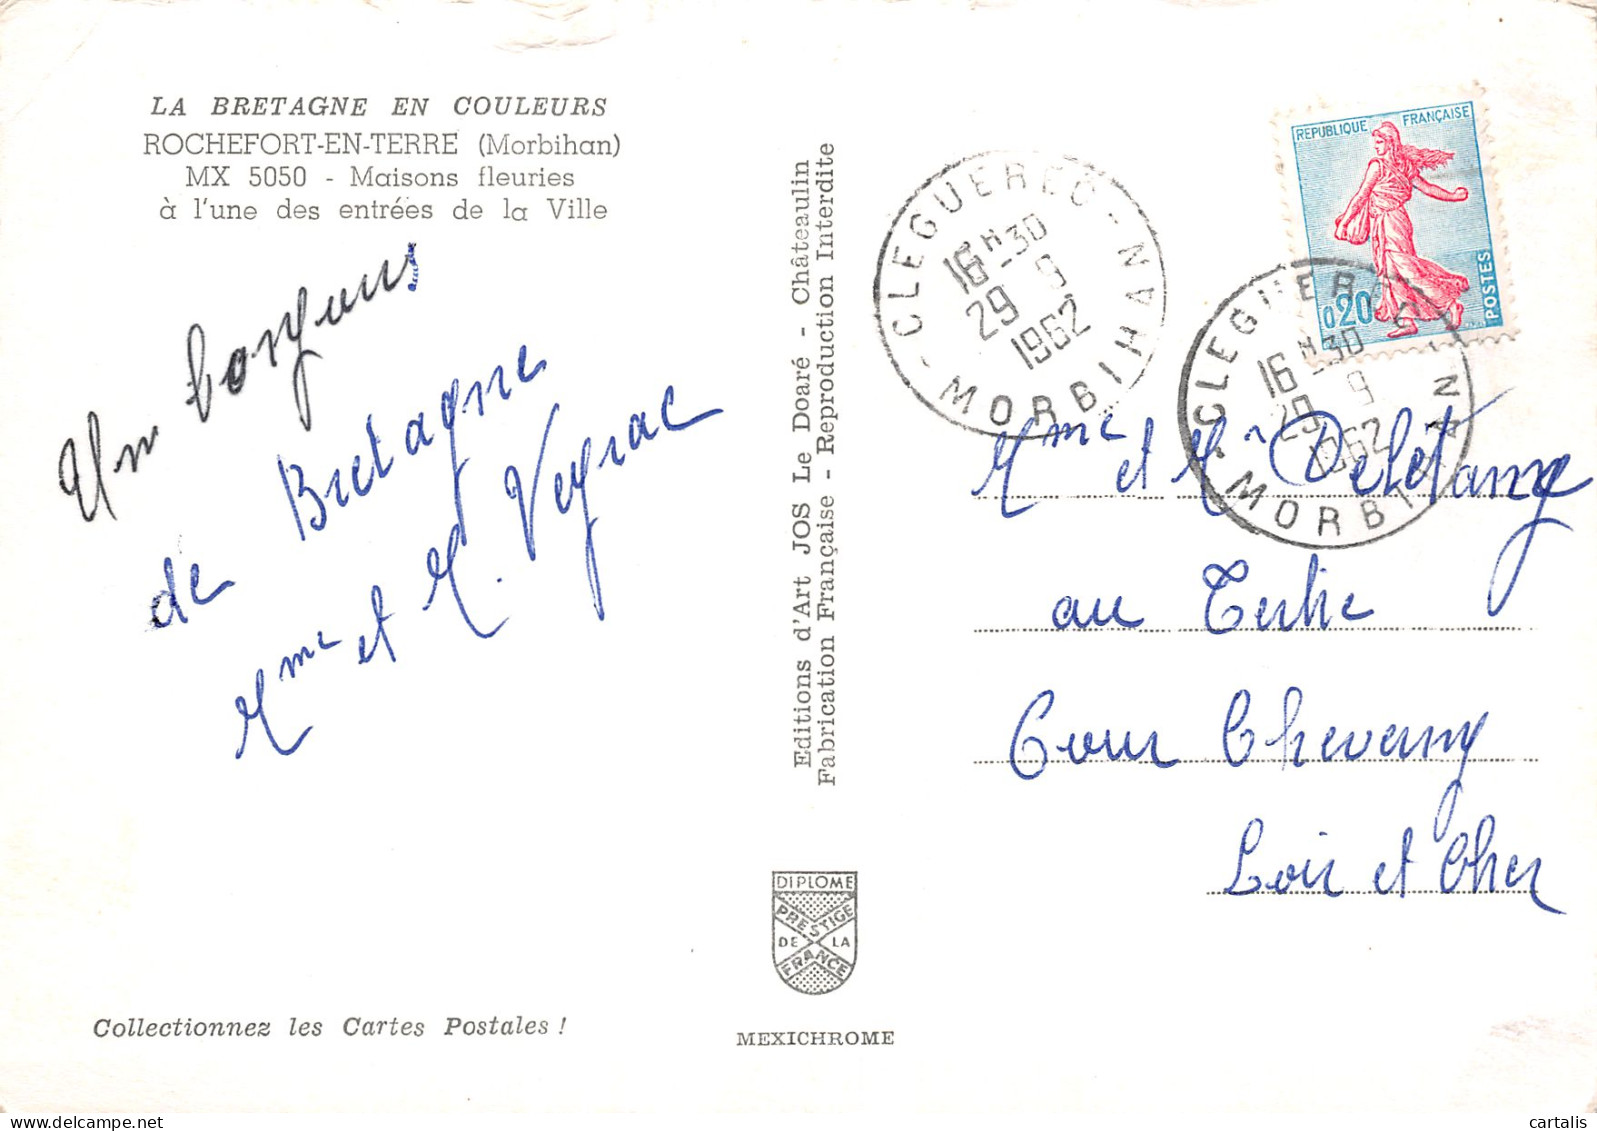 LA BRETAGNE EN COULEURS
ROCHEFORT-EN-TERRE (Morbihan)
MX 5050 - Maisons fleuries
à l'une des entrées de la Ville
Un bonjour
de Bretagne
Mme et M. Veyrac
Collectionnez les Cartes Postales !
Editions d'Art JOS Le Doaré - Châteaulin
Fabrication Française - Reproduction Interdite
DIPLOME
PRESTIGE
DE LA
FRANCE
MEXICHROME
CLEGUEREC - MORBIHAN -
16H30
29 9
1962
REPUBLIQUE FRANÇAISE
0,20
POSTES
CLEGUEREC MORBIHAN
16H30
29 9
1962
Mme et Mr Delétang
au Tertre
Cour Cheverny
Loir et Cher
cartalis